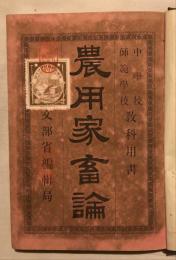 中學校
師範學校
教科用書
農用家畜論
文部省編輯局